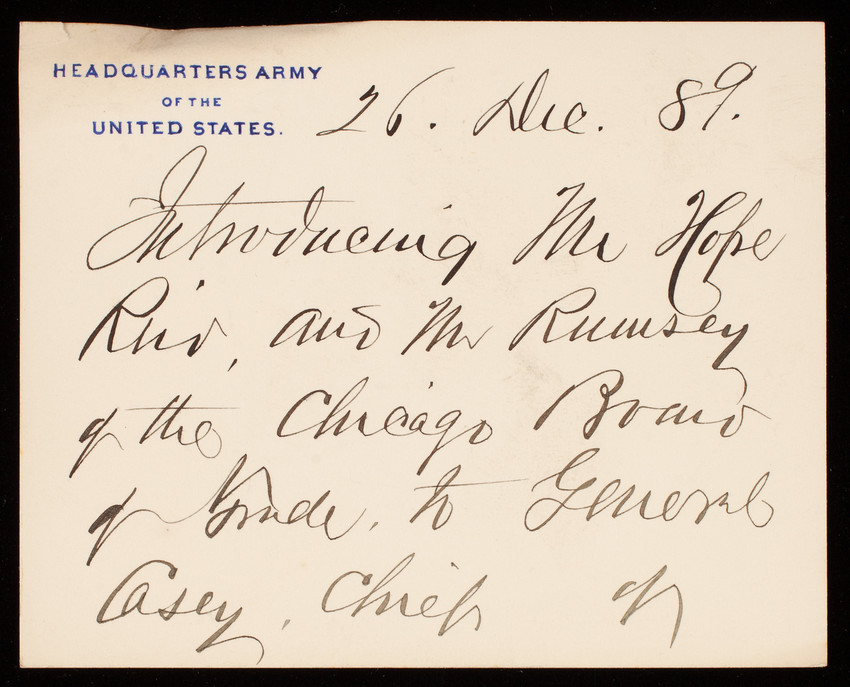 HEADQUARTERS ARMY
OF THE
UNITED STATES.
26. Dec. 89.
Introducing Mr Hope
Reid, and Mr Rumsey
of the Chicago Board
of Trade, to General
Casey, Chief of